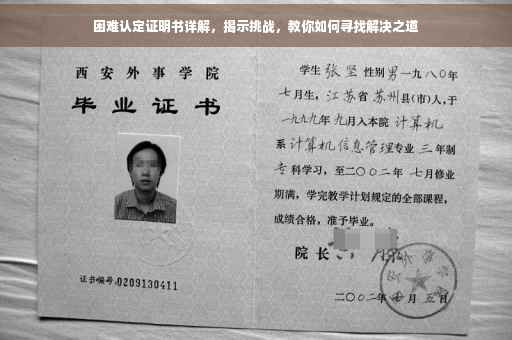 困难认定证明书详解，揭示挑战，教你如何寻找解决之道
西安外事学院
毕业证书
证书编号:0209130411
学生张坚性别男一九八〇年
七月生，江苏省苏州县(市)人,于
一九九九年九月入本院计算机
系计算机信息管理专业三年制
专科学习，至二〇〇二年七月修业
期满，学完教学计划规定的全部课程，
成绩合格，准予毕业。
院长
二〇〇二年七月五日